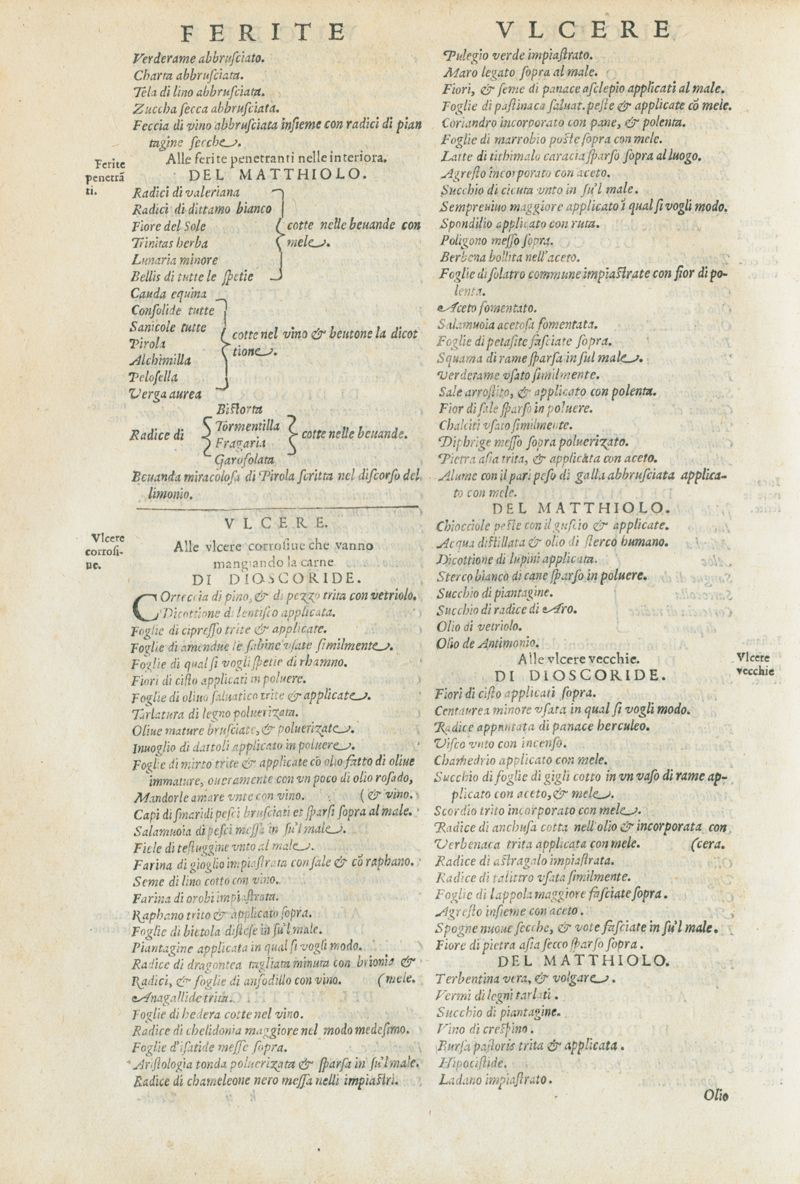 FERITE
Verderame abbrusciato.
Charta abbrusciata.
Tela di lino abbrusciata.
Zuccha secca abbrusciata.
Feccia di vino abbrusciata insieme con radici di pian
tagine secche.
Ferite
penetrā
ti.
Alle ferite penetranti nelle interiora.
DEL MATTHIOLO.
Radici di valeriana
Radici di dittamo bianco
Fiore del Sole
Trinitas herba
Lunaria minore
Bellis di tutte le spetie
cotte nelle beuande con
mele.
Cauda equina
Consolide tutte
Sanicole tutte
Pirola
Alchimilla
Pelosella
Verga aurea
cotte nel vino & beutone la dicot
tione.
Radice di
Bistorta
Tormentilla
Fragaria
Garofolata
cotte nelle beuande.
Beuanda miracolosa di Pirola scritta nel discorso del
limonio.
VLCERE.
Vlcere
corrosi-
ue.
Alle vlcere corrosiue che vanno
mangiando la carne
DI DIOSCORIDE.
COrteccia di pino, & di pezzo trita con vetriolo.
Dicottione di lentisco applicata.
Foglie di cipresso trite & applicate.
Foglie di amendue le sabine vsate similmente.
Foglie di qual si vogli spetie di rhamno.
Fiori di cisto applicati in poluere.
Foglie di oliuo saluatico trite & applicate.
Tarlatura di legno poluerizata.
Oliue mature brusciate, & poluerizate.
Inuoglio di dattoli applicato in poluere.
Foglie di mirto trite & applicate cō olio fatto di oliue
immature, oueramente con vn poco di olio rosado,
Mandorle amare vnte con vino. (& vino.
Capi di smaridi pesci brusciati et sparsi sopra al male.
Salamuoia di pesci messa in su'l male.
Fiele di testuggine vnto al male.
Farina di gioglio impiastrata con sale & cō raphano.
Seme di lino cotto con vino.
Farina di orobi impiastrata.
Raphano trito & applicato sopra.
Foglie di bietola distese in su'l male.
Piantagine applicata in qual si vogli modo.
Radice di dragontea tagliata minuta con brionia &
Radici, & foglie di ansodillo con vino. (mele.
Anagallide trita.
Foglie di hedera cotte nel vino.
Radice di chelidonia maggiore nel modo medesimo.
Foglie d'isatide messe sopra.
Aristologia tonda poluerizata & sparsa in su'l male.
Radice di chameleone nero messa nelli impiastri.
VLCERE
Pulegio verde impiastrato.
Maro legato sopra al male.
Fiori, & seme di panace asclepio applicati al male.
Foglie di pastinaca saluat. peste & applicate cō mele.
Coriandro incorporato con pane, & polenta.
Foglie di marrobio poste sopra con mele.
Latte di tithimalo caracia sparso sopra al luogo.
Agresto incorporato con aceto.
Succhio di cicuta vnto in su'l male.
Sempreuiuo maggiore applicato ī qual si vogli modo.
Spondilio applicato con ruta.
Poligono messo sopra.
Berbena bollita nell'aceto.
Foglie di solatro commune impiastrate con fior di po-
lenta.
Aceto fomentato.
Salamuoia acetosa fomentata.
Foglie di petasite fasciate sopra.
Squama di rame sparsa in sul male.
Verderame vsato similmente.
Sale arrostito, & applicato con polenta.
Fior di sale sparso in poluere.
Chalciti vsato similmente.
Diphrige messo sopra poluerizato.
Pietra asia trita, & applicata con aceto.
Alume con il pari peso di galla abbrusciata applica-
to con mele.
DEL MATTHIOLO.
Chiocciole peste con il guscio & applicate.
Acqua distillata & olio di sterco humano.
Dicottione di lupini applicata.
Sterco bianco di cane sparso in poluere.
Succhio di piantagine.
Succhio di radice di Aro.
Olio di vetriolo.
Olio de Antimonio.
Vlcere
vecchie
Alle vlcere vecchie.
DI DIOSCORIDE.
Fiori di cisto applicati sopra.
Centaurea minore vsata in qual si vogli modo.
Radice appuntata di panace herculeo.
Visco vnto con incenso.
Chamedrio applicato con mele.
Succhio di foglie di gigli cotto in vn vaso di rame ap-
plicato con aceto, & mele.
Scordio trito incorporato con mele.
Radice di anchusa cotta nell'olio & incorporata con
Verbenaca trita applicata con mele. (cera.
Radice di astragalo impiastrata.
Radice di talittro vsata similmente.
Foglie di lappola maggiore fasciate sopra.
Agresto insieme con aceto.
Spogne nuoue secche, & vote fasciate in su'l male.
Fiore di pietra asia secco sparso sopra.
DEL MATTHIOLO.
Terbentina vera, & volgare.
Vermi di legni tarlati.
Succhio di piantagine.
Vino di crespino.
Bursa pastoris trita & applicata.
Hipocistide.
Ladano impiastrato.
Olio